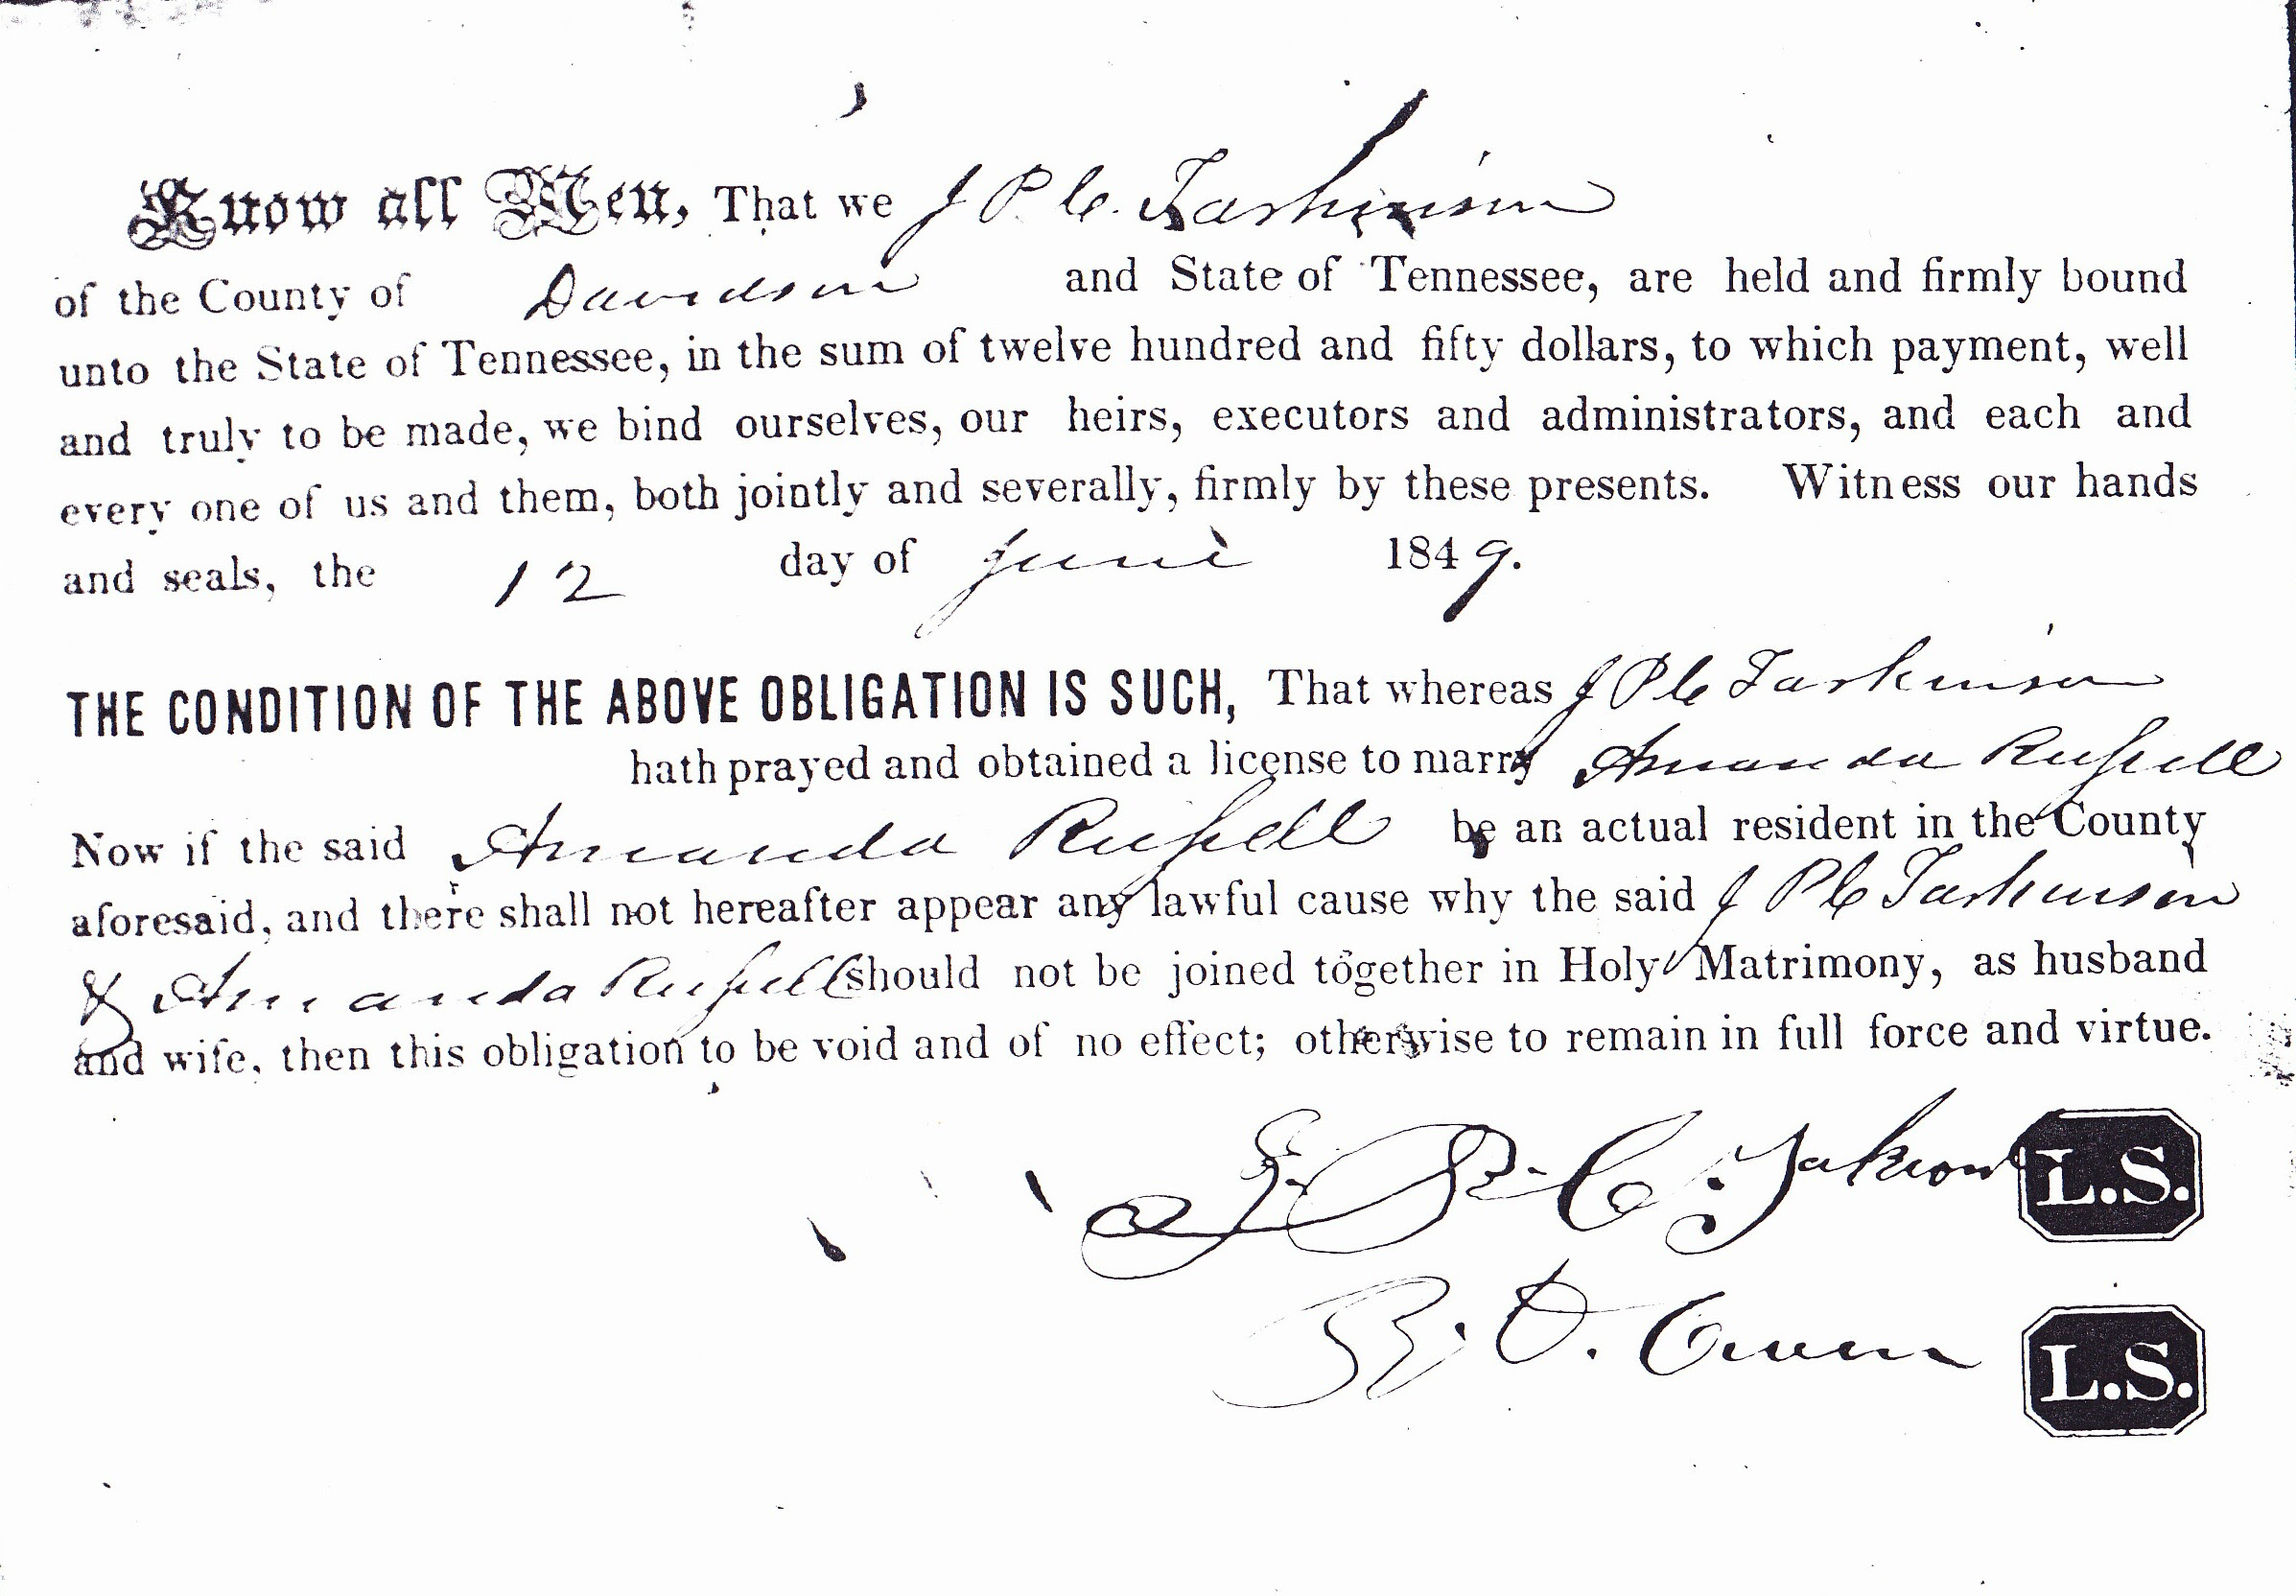 Know all Men, That we J P C. Tarkinson
of the County of Davidson and State of Tennessee, are held and firmly bound
unto the State of Tennessee, in the sum of twelve hundred and fifty dollars, to which payment, well
and truly to be made, we bind ourselves, our heirs, executors and administrators, and each and
every one of us and them, both jointly and severally, firmly by these presents. Witness our hands
and seals, the 12 day of June 1849.
THE CONDITION OF THE ABOVE OBLIGATION IS SUCH, That whereas J P C Tarkinson
hath prayed and obtained a license to marry Amanda Russell
Now if the said Amanda Russell be an actual resident in the County
aforesaid, and there shall not hereafter appear any lawful cause why the said J P C Tarkinson
& Amanda Russell should not be joined together in Holy Matrimony, as husband
and wife, then this obligation to be void and of no effect; otherwise to remain in full force and virtue.
J. P. C. L.S.
Owen L.S.